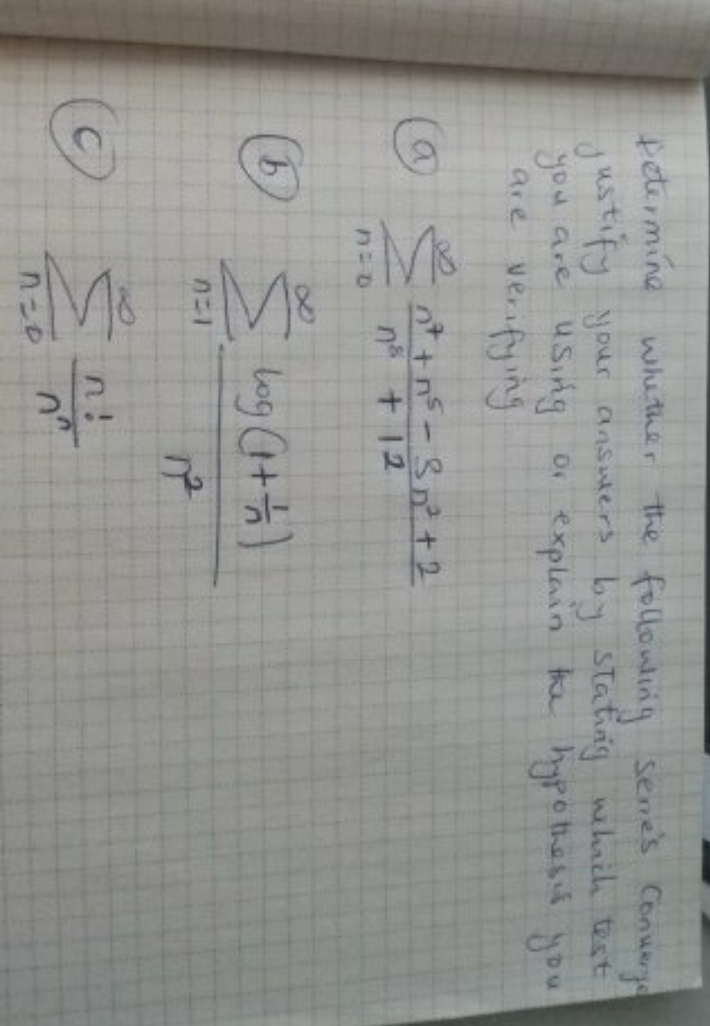 Determine whether the following serie's Converge
justify your answers by stating which test
you are using or explain the hypothesis you
are verifying
(a) ∞ ∑ n=0 n⁷ + n⁵ - 3n² + 2 / n⁸ + 12
(b) ∞ ∑ n=1 log(1 + 1/n) / n²
(c) ∞ ∑ n=0 n! / nⁿ